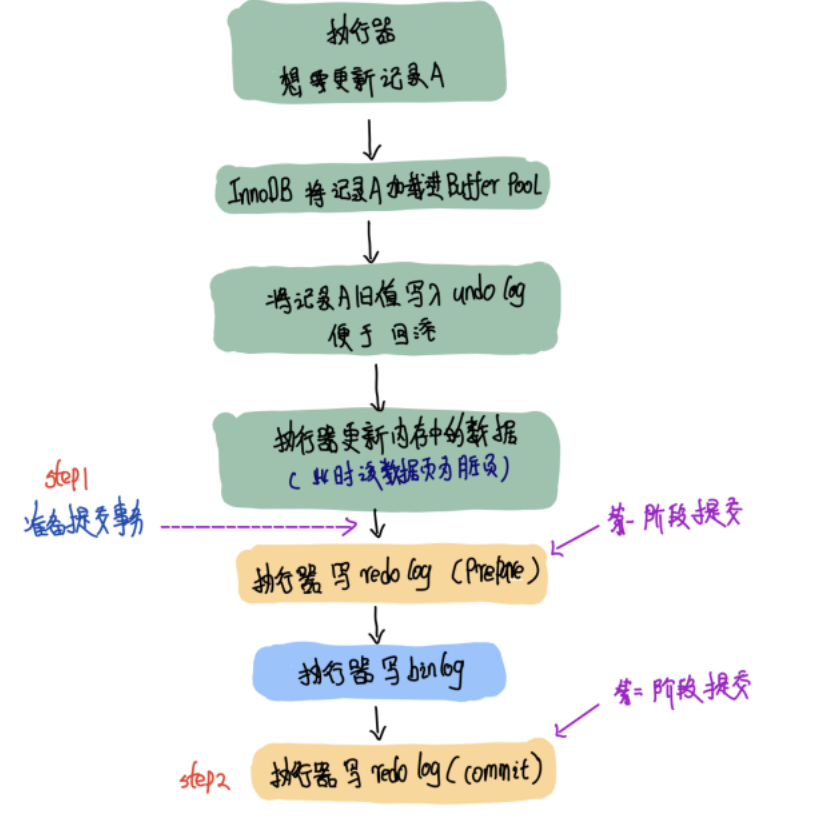 执行器
想要更新记录A
InnoDB 将记录A加载进Buffer Pool
将记录A旧值写入 undo log
便于回滚
执行器更新内存中的数据
(此时该数据页为脏页)
step1
准备提交事务
第一阶段提交
执行器写redo log (Prepare)
执行器写binlog
第二阶段提交
step2
执行器写redo log(commit)